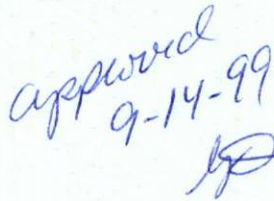 approved
9-14-99